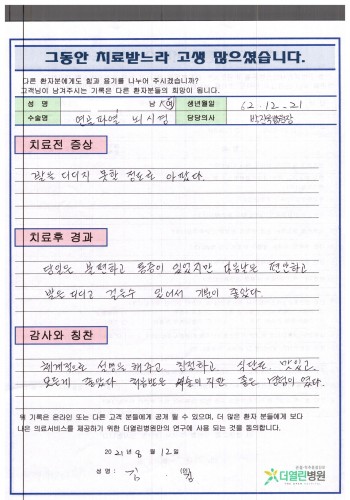 그동안 치료받느라 고생 많으셨습니다.
다른 환자분에게도 힘과 용기를 나누어 주시겠습니까?
고객님이 남겨주시는 기록은 다른 환자분들의 희망이 됩니다.
성 명 남 생년월일 62.12.21
수술명 연골파열 뇌시경 담당의사
치료전 증상
발을 디디지 못할 정도로 아팠다.
치료후 경과
당일은 불편하고 통증이 있었지만 다음날은 편안하고
발을 디디고 걸을수 있어서 기분이 좋았다.
감사와 칭찬
체계적으로 설명을 해주고 친절하고 식단도 맛있고
모든게 좋았다 처음받은 수술이지만 좋은 경험이 였다.
위 기록은 온라인 또는 다른 고객 분들에게 공개 될 수 있으며, 더 많은 환자 분들에게 보다
나은 의료서비스를 제공하기 위한 더열린병원만의 연구에 사용 되는 것을 동의합니다.
2021년 8월 12일
성 명 : 김
더열린병원